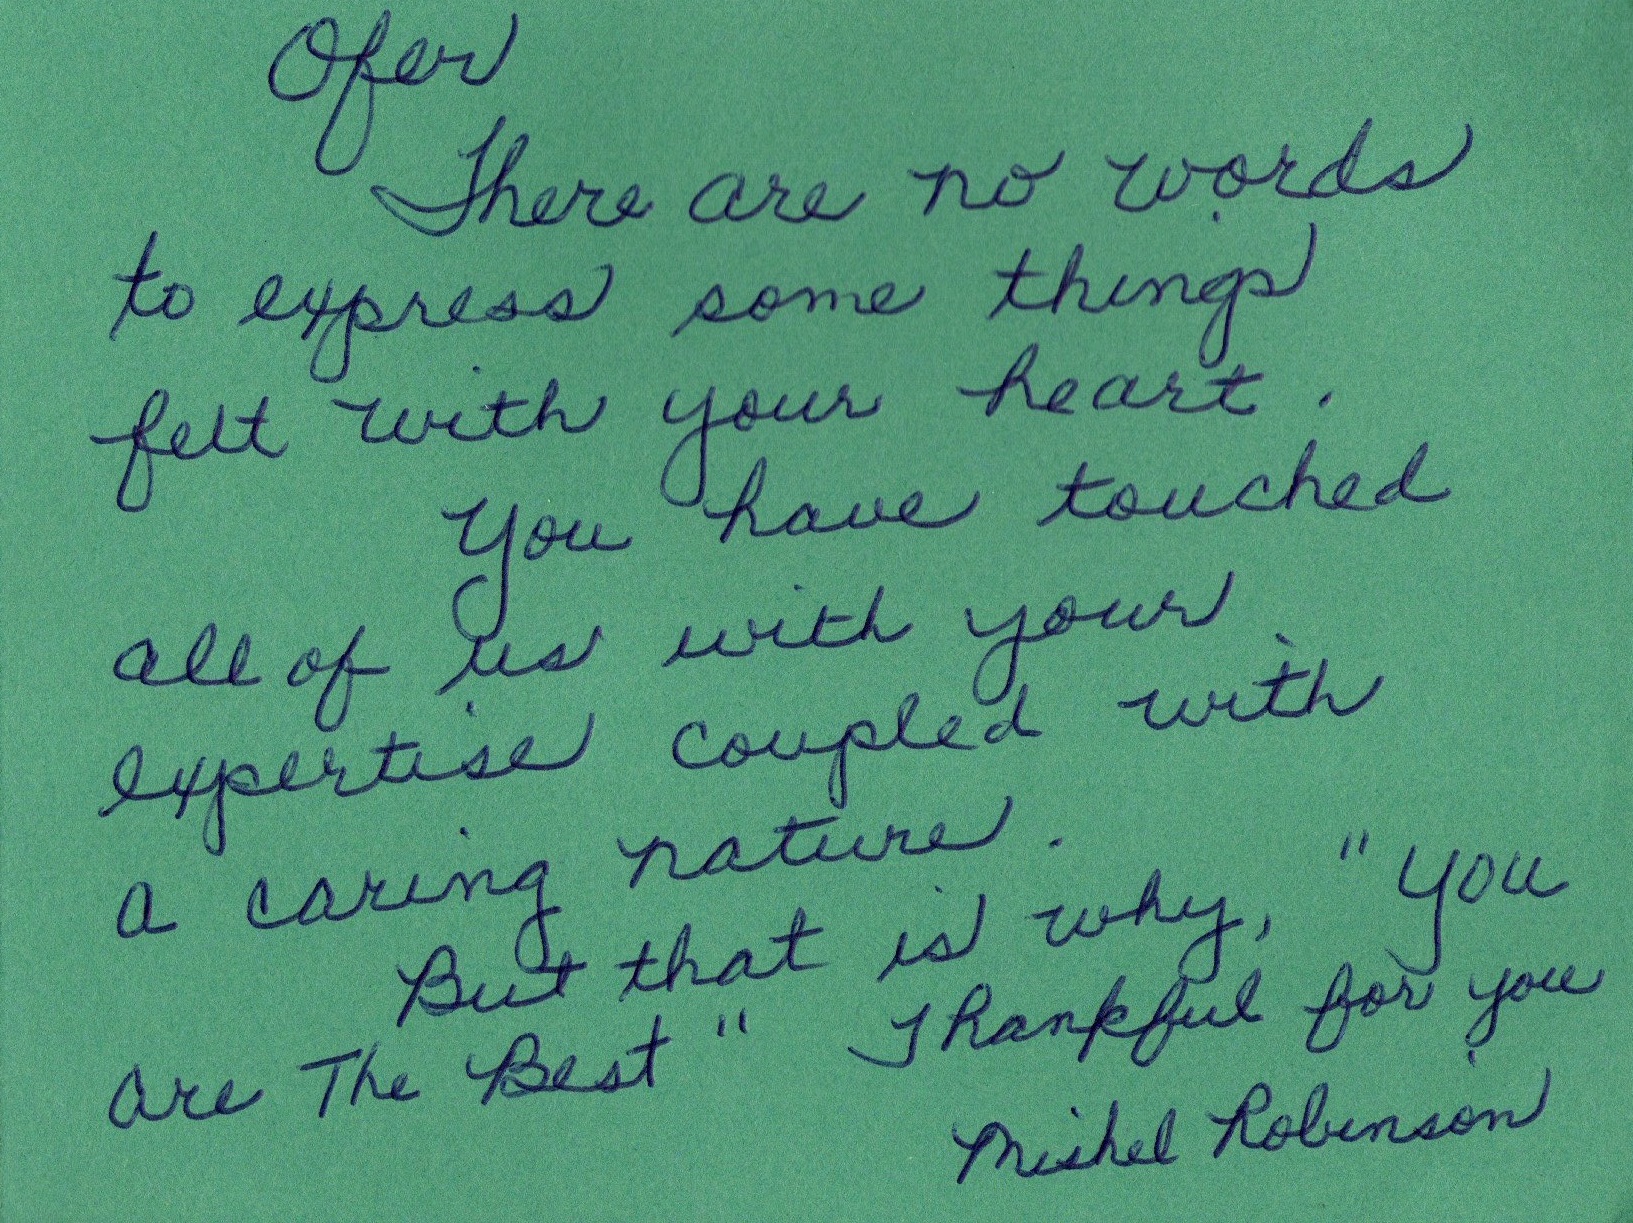 Ofer
There are no words
to express some things
felt with your heart.
You have touched
all of us with your
expertise coupled with
a caring nature.
But that is why, "You
are The Best" Thankful for you
Mishel Robinson